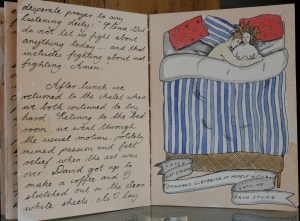 desperate prayer to any
listening deity: "Please God
do not let us fight about
anything today... and that
includes fighting about not
fighting. Amen.
After lunch we
returned to the chalet where
we both continued to try
hard. Retiring to the bed
room, we went through
the usual motions, politely
mimed passion and felt
relief when the act was
over. David got up to
make a coffee and I
stretched out on the clean
white sheets. As I lay